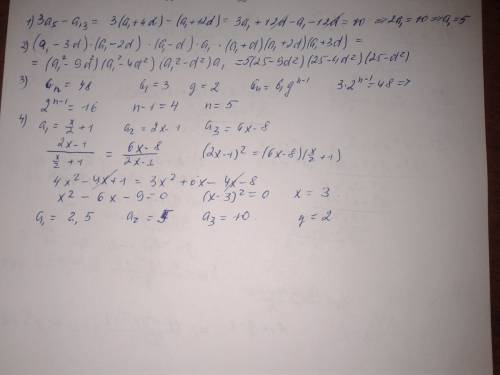 1) 3a₅ - a₁₃ = 3(a₁+4d) - (a₁+12d) = 3a₁+12d-a₁-12d = 10 ⇒ 2a₁=10 ⇒ a₁=5
2) (a₁-3d)·(a₁-2d)·(a₁-d)·a₁·(a₁+d)(a₁+2d)(a₁+3d) =
= (a₁²-9d²)(a₁²-4d²)(a₁²-d²)a₁ = 5(25-9d²)(25-4d²)(25-d²)
3) bₙ = 48 b₁=3 q=2 bₙ=b₁qⁿ⁻¹ 3·2ⁿ⁻¹=48 ⇒
2ⁿ⁻¹=16 n-1=4 n=5
4) a₁ = x/2 + 1 a₂ = 2x-1 a₃ = 6x-8
(2x-1)/(x/2+1) = (6x-8)/(2x-1) (2x-1)² = (6x-8)(x/2+1)
4x²-4x+1 = 3x²+6x-4x-8
x²-6x-9=0 (x-3)²=0 x=3
a₁ = 2,5 a₂ = 5 a₃ = 10 q = 2